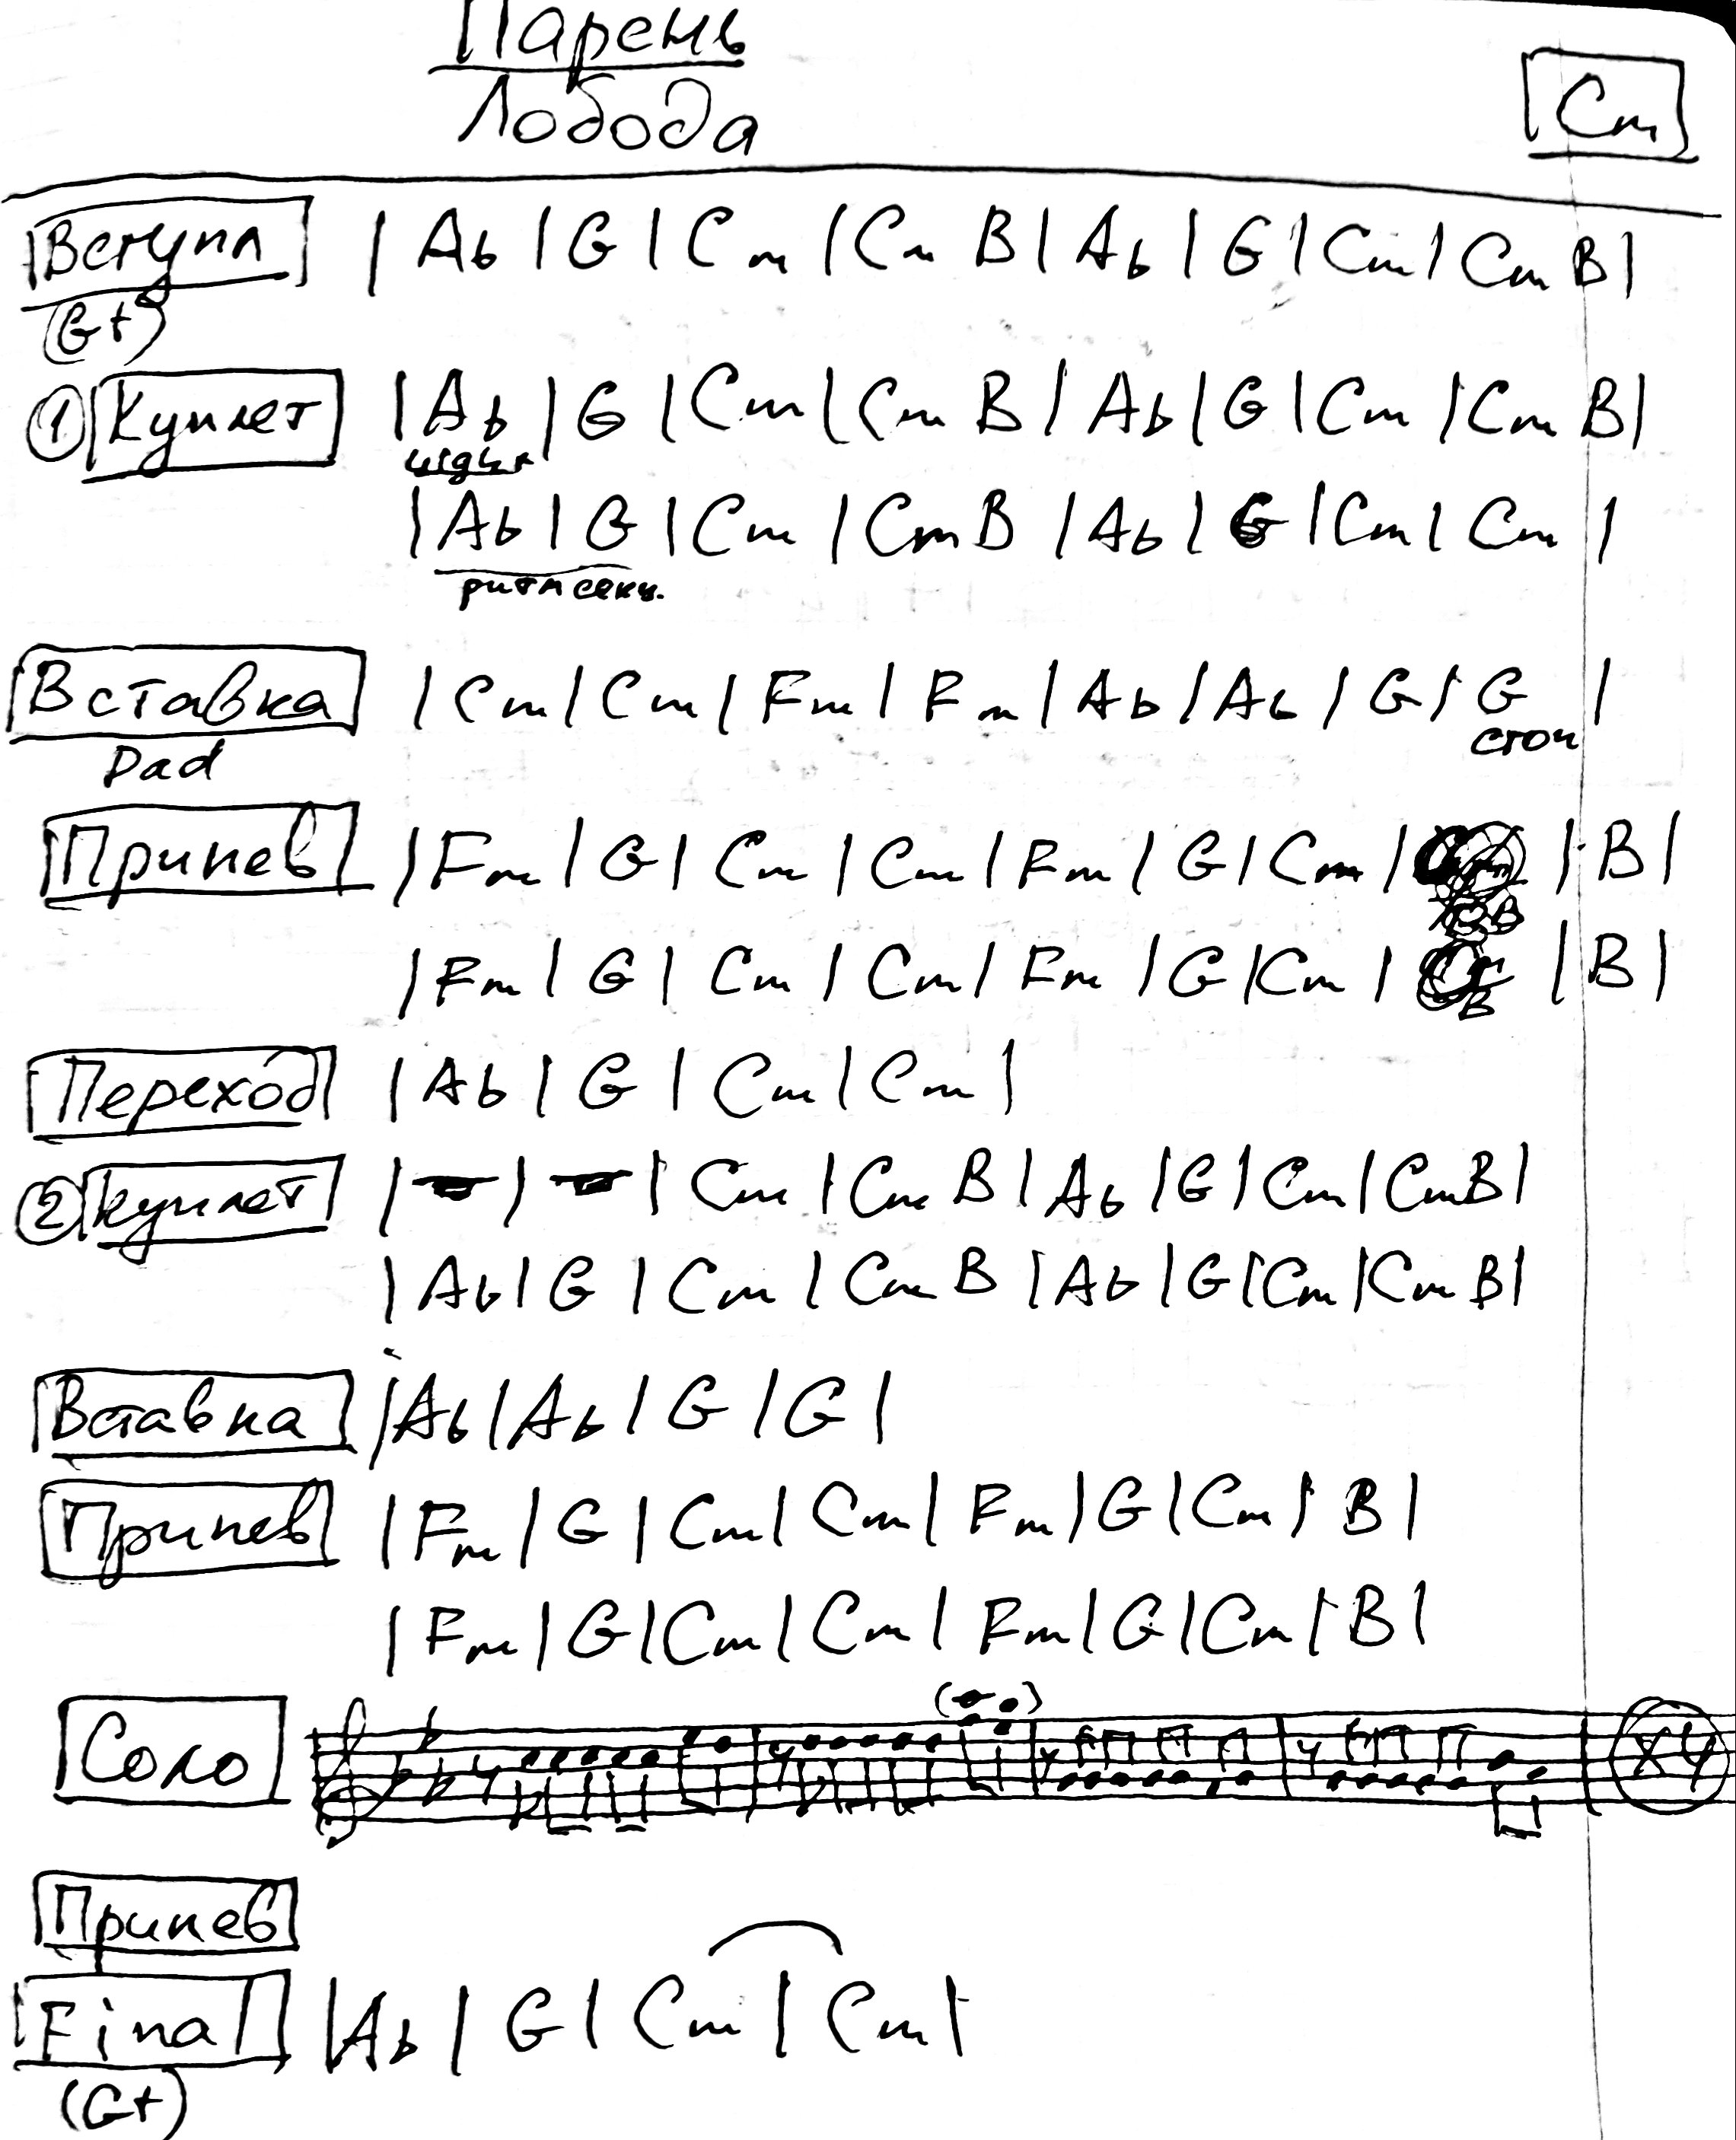 Парень
Лобода
Cm
Вступл | Ab | G | Cm | Cm B | Ab | G | Cm | Cm B |
(G+)
① Куплет | Ab | G | Cm | Cm B | Ab | G | Cm | Cm B |
| Ab | G | Cm | Cm B | Ab | G | Cm | Cm |
ритм секц.
Вставка | Cm | Cm | Fm | Fm | Ab | Ab | G | G |
стоп
Pad
Припев | Fm | G | Cm | Cm | Fm | G | Cm | | B |
| Fm | G | Cm | Cm | Fm | G | Cm | | B |
Переход | Ab | G | Cm | Cm |
② куплет | - | - | Cm | Cm B | Ab | G | Cm | Cm B |
| Ab | G | Cm | Cm B | Ab | G | Cm | Cm B |
Вставка | Ab | Ab | G | G |
Припев | Fm | G | Cm | Cm | Fm | G | Cm | B |
| Fm | G | Cm | Cm | Fm | G | Cm | B |
Соло x4
Припев
Final | Ab | G | Cm | Cm |
(G+)